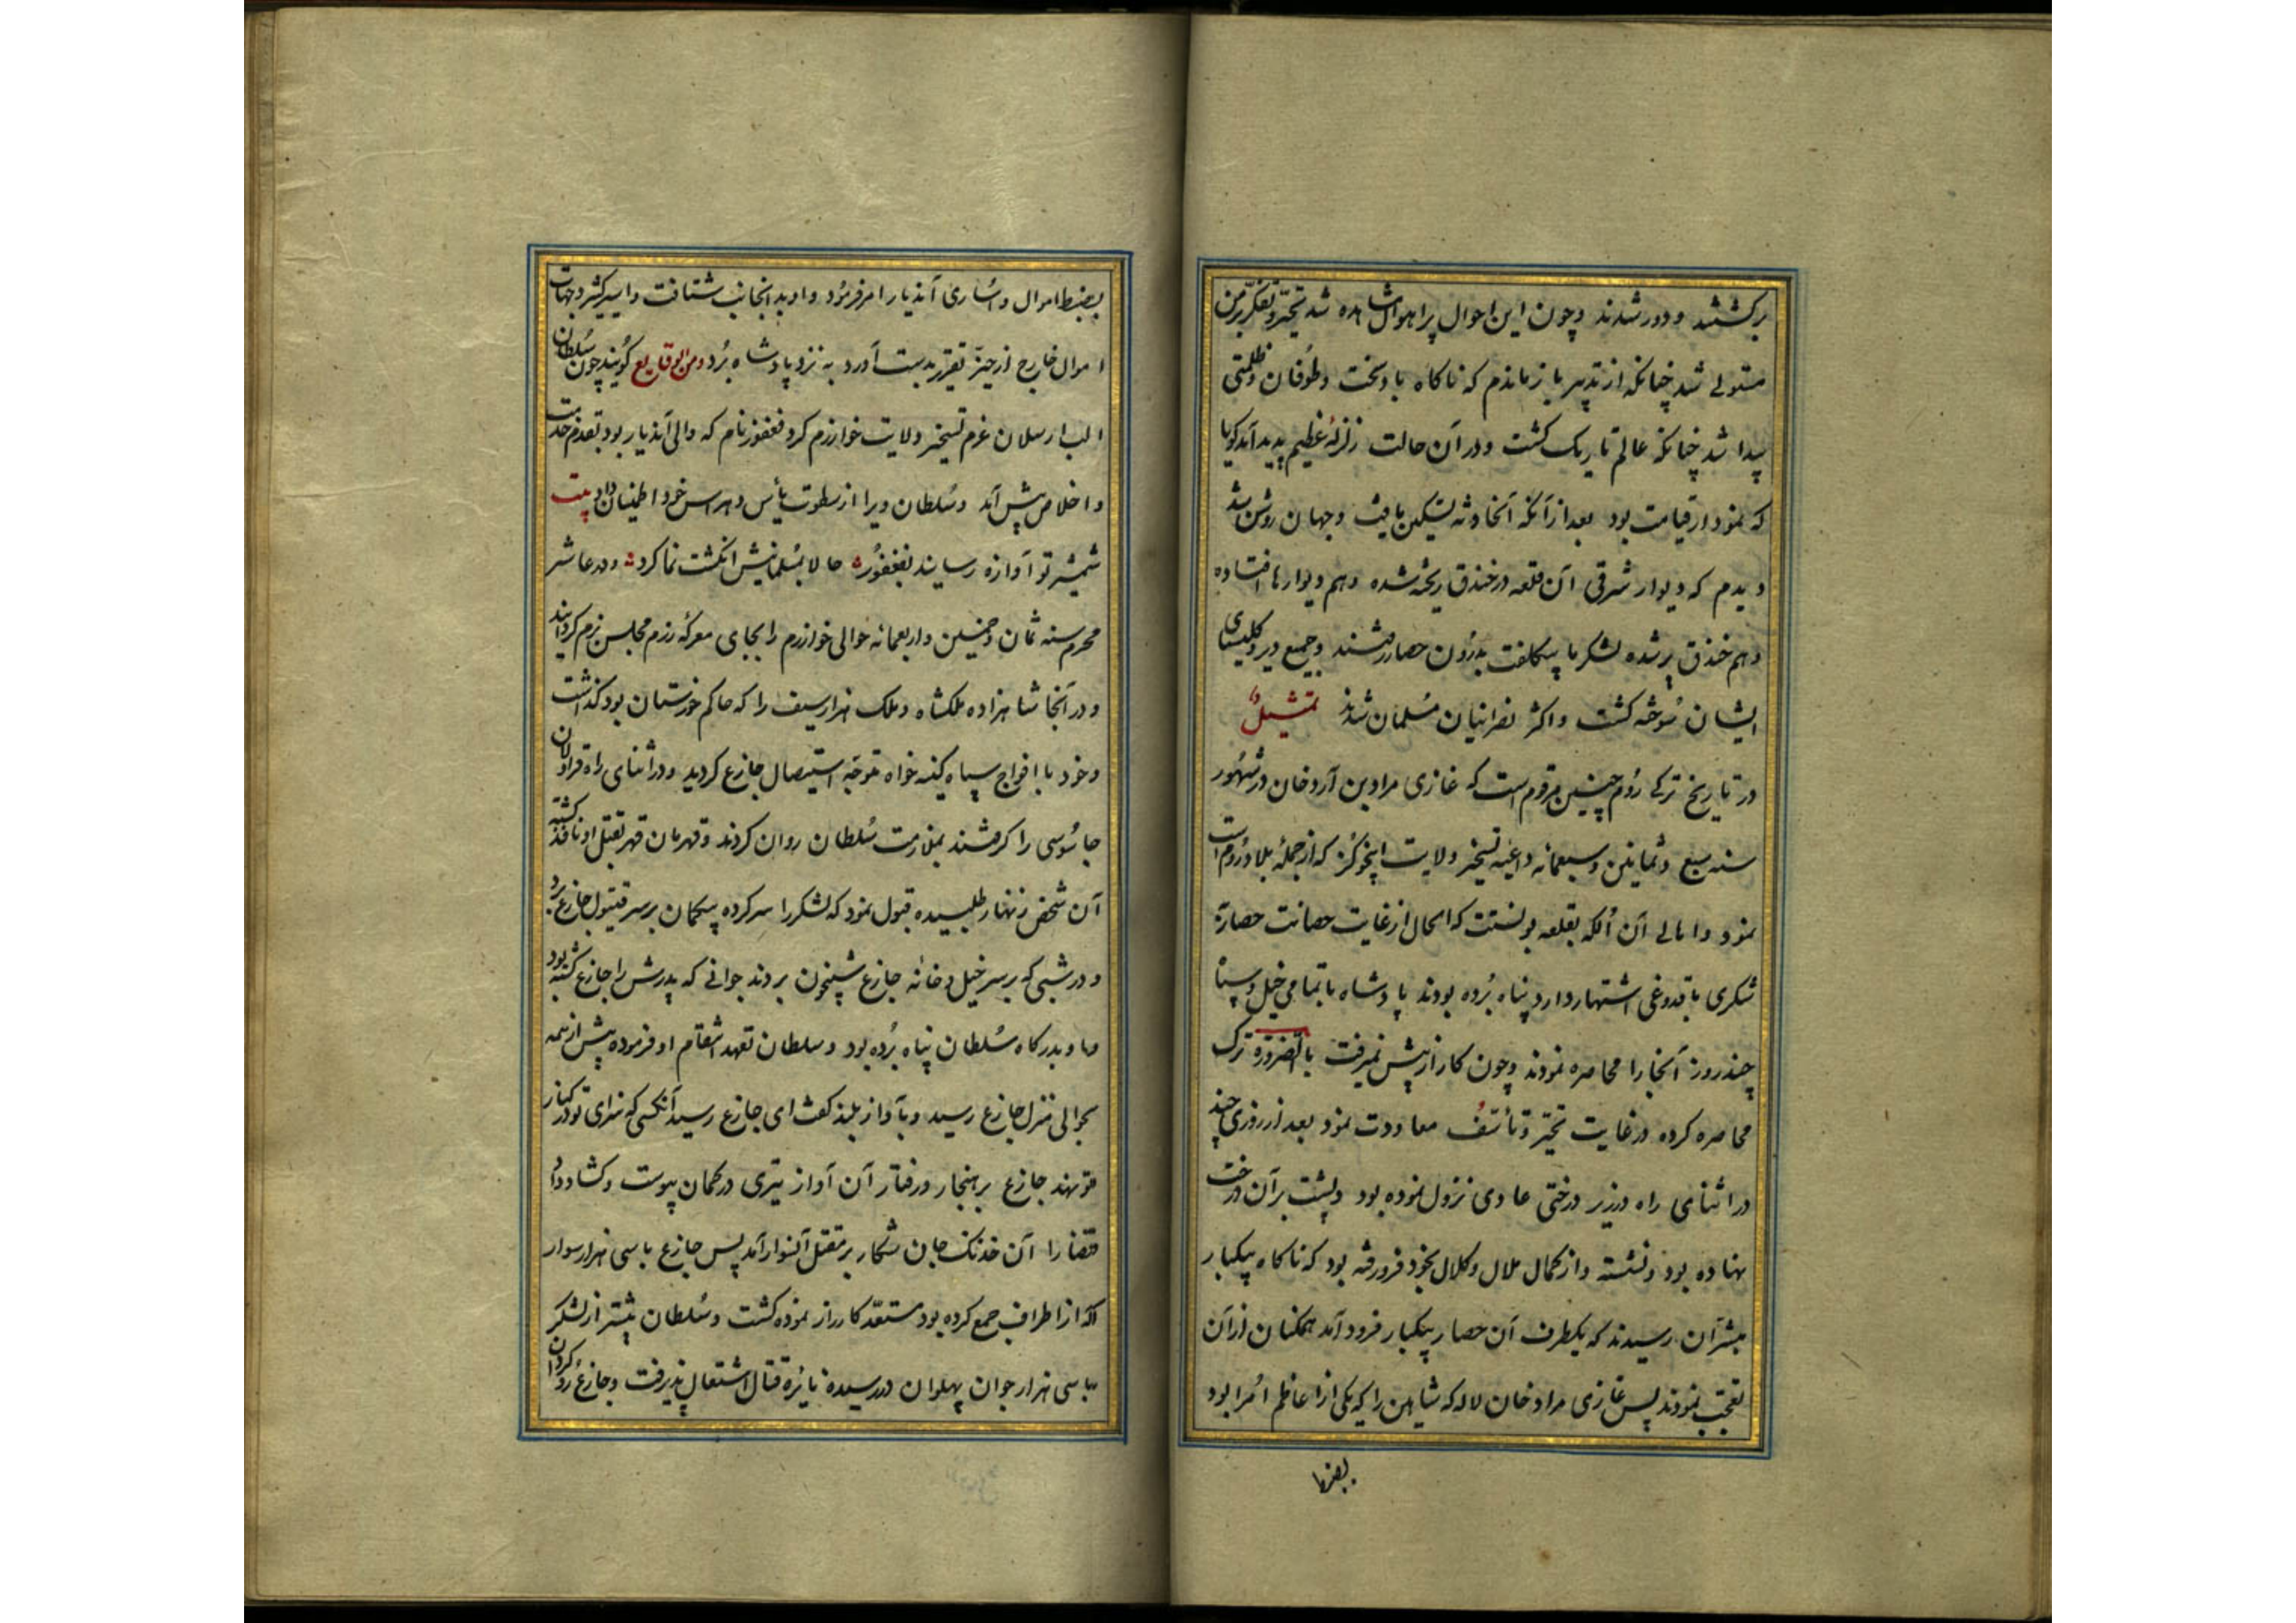 برگشتند و دور شدند و چون این احوال پر اهوال مشاهده شد تحیّر و تفکّر بر من
مستولی شد چنانکه از تدبیر باز ماندم که ناکاه باد سخت و طوفان و ظلمتی
پیدا شد چنانکه عالم تاریک کشت و در آن حالت زلزلهٔ عظیم پدید آمد کویا
که نمودار قیامت بود بعد از آنکه آنحادثه تسکین یافت و جهان روشن شد
دیدم که دیوار شرقی آن قلعه در خندق ریخته شده و هم دیوارها افتاده
و هم خندق پر شده لشکر ما بیکلفت بدرون حصار رفتند و جمیع دیر و کلیسای
ایشان سوخته کشت و اکثر نصرانیان مسلمان شدند تمثیل
در تاریخ ترکی روم چنین مرقوم است که غازی مراد بن آردخان در شهور
سنه سبع و ثمانین و سبعمائه داعیه تسخیر ولایت که از جملهٔ بلاد روم است
نمود و اهالی آن الکه بقلعه بولنت که الحال از غایت حصانت حصار
اشتهار دارد پناه برده بودند پادشاه با تمامی خیل و سپاه
چند روز آنجا را محاصره نمودند و چون کار از پیش نمیرفت بالضروره ترک
محاصره کرده در غایت تحیّر و تأسّف معاودت نمود بعد از روزی چند
در اثنای راه در زیر درختی عادی نزول نموده بود و پشت بر آن درخت
نهاده بود و نشسته و از کمال ملال و کلال بخود فرو رفته بود که ناکاه بیکبار
مبشران رسیدند که یکطرف آن حصار بیکبار فرود آمد همکنان از آن
تعجب نمودند پس غازی مراد خان لاله که شاهین را که یکی از اعاظم امرا بود
بضبط اموال و اساری آندیار امر فرمود و او بدانجانب شتافت و اسیر کثیر و جهات
اموال خارج از حیّز تقریر بدست آورد به نزد پادشاه برد و من الوقایع کویند چون سلطان
الب ارسلان عزم تسخیر ولایت خوارزم کرد فغفور نام که والی آندیار بود بقدم خدمت
و اخلاص پیش آمد و سلطان ویرا از سطوت بأس و هراس خود اطمینان داد بیت
شمشیر تو آوازه رسانید بفغفور حالا بمسلمانیش انکشت نما کرد و در عاشر
محرم سنه ثمان و خمسین و اربعمائه حوالی خوارزم را بجای معرکه رزم مجلس بزم کردانید
و در آنجا شاهزاده ملکشاه و ملک هزار سیف را که حاکم خوزستان بود کذاشت
و خود با افواج سپاه کینه خواه متوجّه استیصال جازع کردید و در اثنای راه قراولان
جاسوسی را کرفتند بملازمت سلطان روان کردند و قهرمان قهر بقتل او نافذ کشته
آن شخص زنهار طلبیده قبول نمود که لشکر را سر کرده بیکمان بر سر قیتول جازع برد
و در شبی که بر سر خیل و خانه جازع شبیخون بردند جوانی که پدرش را جازع کشته بود
و او بدرکاه سلطان پناه برده بود و سلطان تعهد انتقام او فرموده پیش از همه
بحوالی منزل جازع رسید و بآواز بلند کفت ای جازع رسید آنکسی که سزای تو در کنار
تو نهد جازع بر هنجار و رفتار آن آواز تیری در کمان پیوست و کشاد داد
قضا را آن خدنک جان شکار بر مقتل آنسوار آمد پس جازع با سی هزار سوار
که از اطراف جمع کرده بود مستعدّ کارزار نموده کشت و سلطان بیشتر از لشکر
با سی هزار جوان پهلوان در رسیده نایره قتال اشتعال پذیرفت و جازع رو کردان